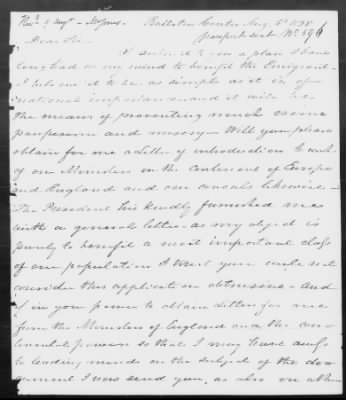 Recd 9 Augt - Mr Jones - Ballston Centre Aug 6th 1838
passport sent No 696
Dear Sir
I submit to you a plan I have
long had on my mind to benefit the Emigrant -
I believe it to be as simple as it is of
national importance and it will be
the means of preventing much crime
pauperism and misery - Will you please
obtain for me a Letter of introduction to each
of our Ministers on the continent of Europe
and England and our consuls likewise -
The President has kindly furnished me
with a general letter - as my object is
purely to benefit a most important class
of our population I trust you will not
consider this application obtrusive - And
if in your power to obtain Letters for me
from the Ministers of England and the con-
tinental powers so that I may have
to leading minds on the subject of the do-
cument I now send you, as also on other